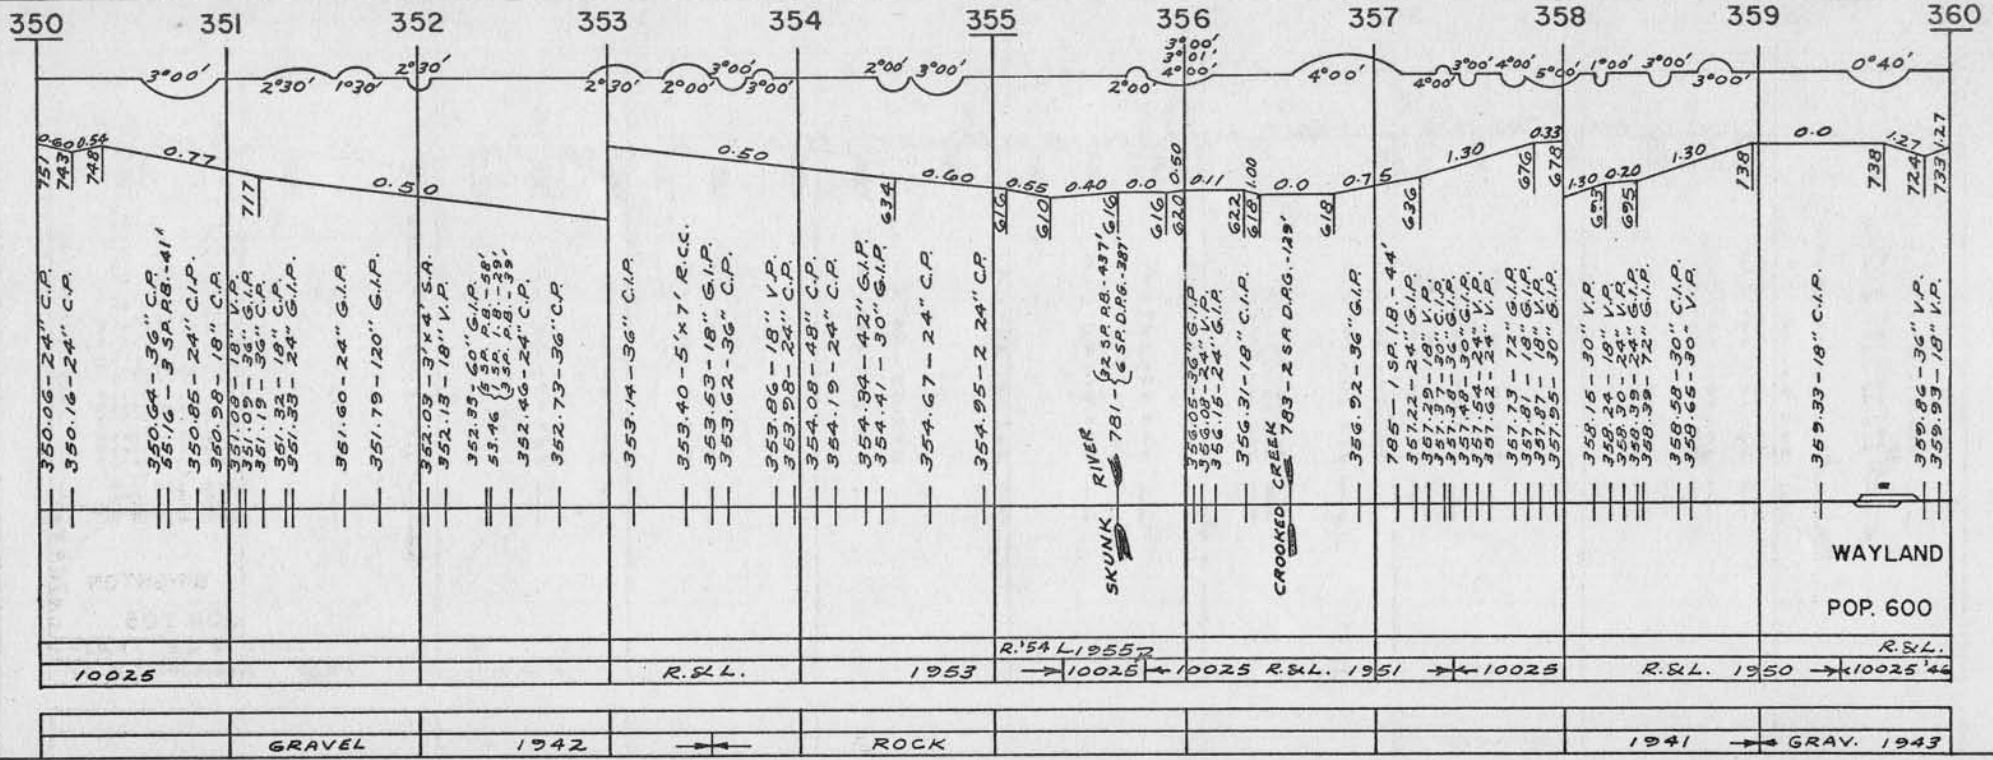 350 351 352 353 354 355 356 357 358 359 360
3°00' 2°30' 1°30' 2°30' 2°30' 2°00' 3°00' 3°00' 2°00' 3°00' 2°00'
3°00'
3°01'
4°00'
4°00' 4°00' 3°00' 4°00' 5°00' 1°00' 3°00' 3°00' 0°40'
0.60 0.54 0.77 0.50 0.50 0.60 0.55 0.40 0.0 0.50 0.11 1.00 0.0 0.75 1.30 0.33 1.30 0.20 1.30 0.0 1.27 1.27
751 743 748 717 634 616 610 616 616 620 622 618 618 636 676 678 695 738 738 724 733
350.06-24" C.P.
350.16-24" C.P.
350.64-36" C.P.
55.16-3 SP. P.B.-41'
350.85-24" C.I.P.
350.98-18" C.P.
351.08-18" V.P.
351.09-36" G.I.P.
351.19-36" C.P.
351.32-18" C.P.
351.33-24" G.I.P.
351.60-24" G.I.P.
351.79-120" G.I.P.
352.03-3'x4' S.A.
352.13-18" V.P.
352.35-60" G.I.P.
53.46 {5 SP. P.B.-58'
{1 SP. I.B.-29'
{3 SP. P.B.-39'
352.46-24" C.P.
352.73-36" C.P.
353.14-36" C.I.P.
353.40-5'x7' R.C.C.
353.53-18" G.I.P.
353.62-36" C.P.
353.86-18" V.P.
353.98-24" C.P.
354.08-48" C.P.
354.19-24" C.P.
354.34-42" G.I.P.
354.41-30" G.I.P.
354.67-24" C.P.
354.95-2 24" C.P.
SKUNK RIVER
781-{32 SP. P.B.-437'
{6 SP. D.P.G.-387'
356.05-36" G.I.P.
356.08-24" V.P.
356.15-24" G.I.P.
356.31-18" C.I.P.
CROOKED CREEK
783-2 SP. D.P.G.-129'
356.92-36" G.I.P.
785-1 SP. I.B.-44'
357.22-24" G.I.P.
357.29-18" V.P.
357.37-30" C.I.P.
357.38-36" G.I.P.
357.48-30" G.I.P.
357.54-24" V.P.
357.62-24" V.P.
357.73-72" G.I.P.
357.81-18" G.I.P.
357.87-18" V.P.
357.95-30" G.I.P.
358.15-30" V.P.
358.24-18" V.P.
358.30-24" V.P.
358.39-24" G.I.P.
358.39-72" G.I.P.
358.58-30" C.I.P.
358.65-30" V.P.
359.33-18" C.I.P.
359.86-36" V.P.
359.93-18" V.P.
WAYLAND
POP. 600
R.'54 L1955 R.&L.
10025 R.&L. 1953 10025 10025 R.&L. 1951 10025 R.&L. 1950 10025 '46
GRAVEL 1942 ROCK 1941 GRAV. 1943